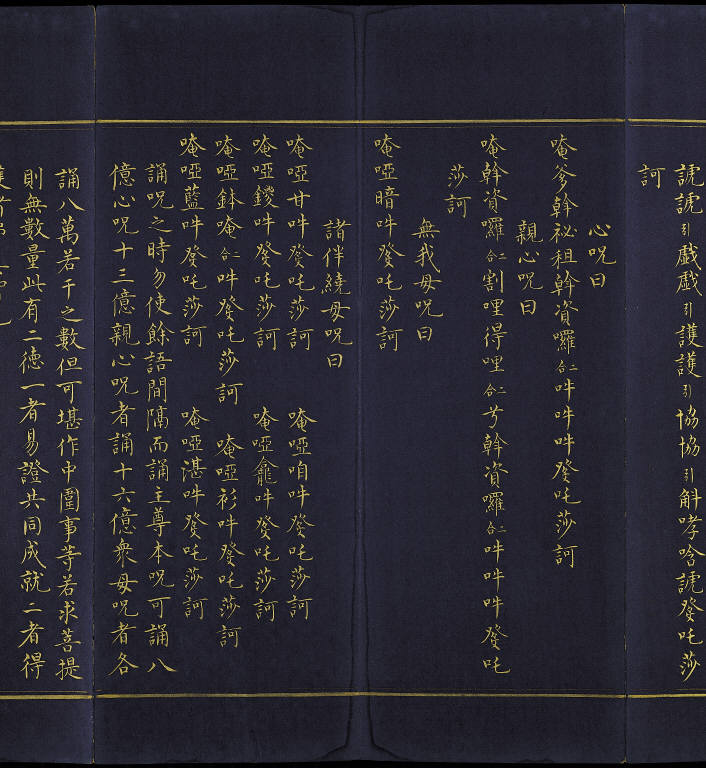 諕諕引戲戲引護護引協協引斛哮唅諕癹吒莎
訶
心呪曰
唵爹斡祕祖斡資囉二合吽吽吽癹吒莎訶
親心呪曰
唵斡資囉二合割哩得哩二合兮斡資囉二合吽吽吽癹吒
莎訶
無我母呪曰
唵啞暗吽癹吒莎訶
諸伴繞母呪曰
唵啞甘吽癹吒莎訶 唵啞咱吽癹吒莎訶
唵啞鑁吽癹吒莎訶 唵啞龕吽癹吒莎訶
唵啞鉢唵二合吽癹吒莎訶 唵啞衫吽癹吒莎訶
唵啞藍吽癹吒莎訶 唵啞湛吽癹吒莎訶
誦呪之時勿使餘語間隔而誦主尊本呪可誦八
億心呪十三億親心呪者誦十六億衆母呪者各
誦八萬若干之數但可堪作中圍事等若求菩提
則無數量此有二德一者易證共同成就二者得